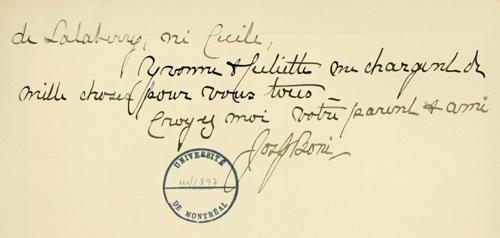 de Salaberry, ni Cécile,
Yvonne & Juliette me chargent de
mille choses pour vous tous
Croyez moi votre parent & ami
UNIVERSITÉ
DE MONTRÉAL